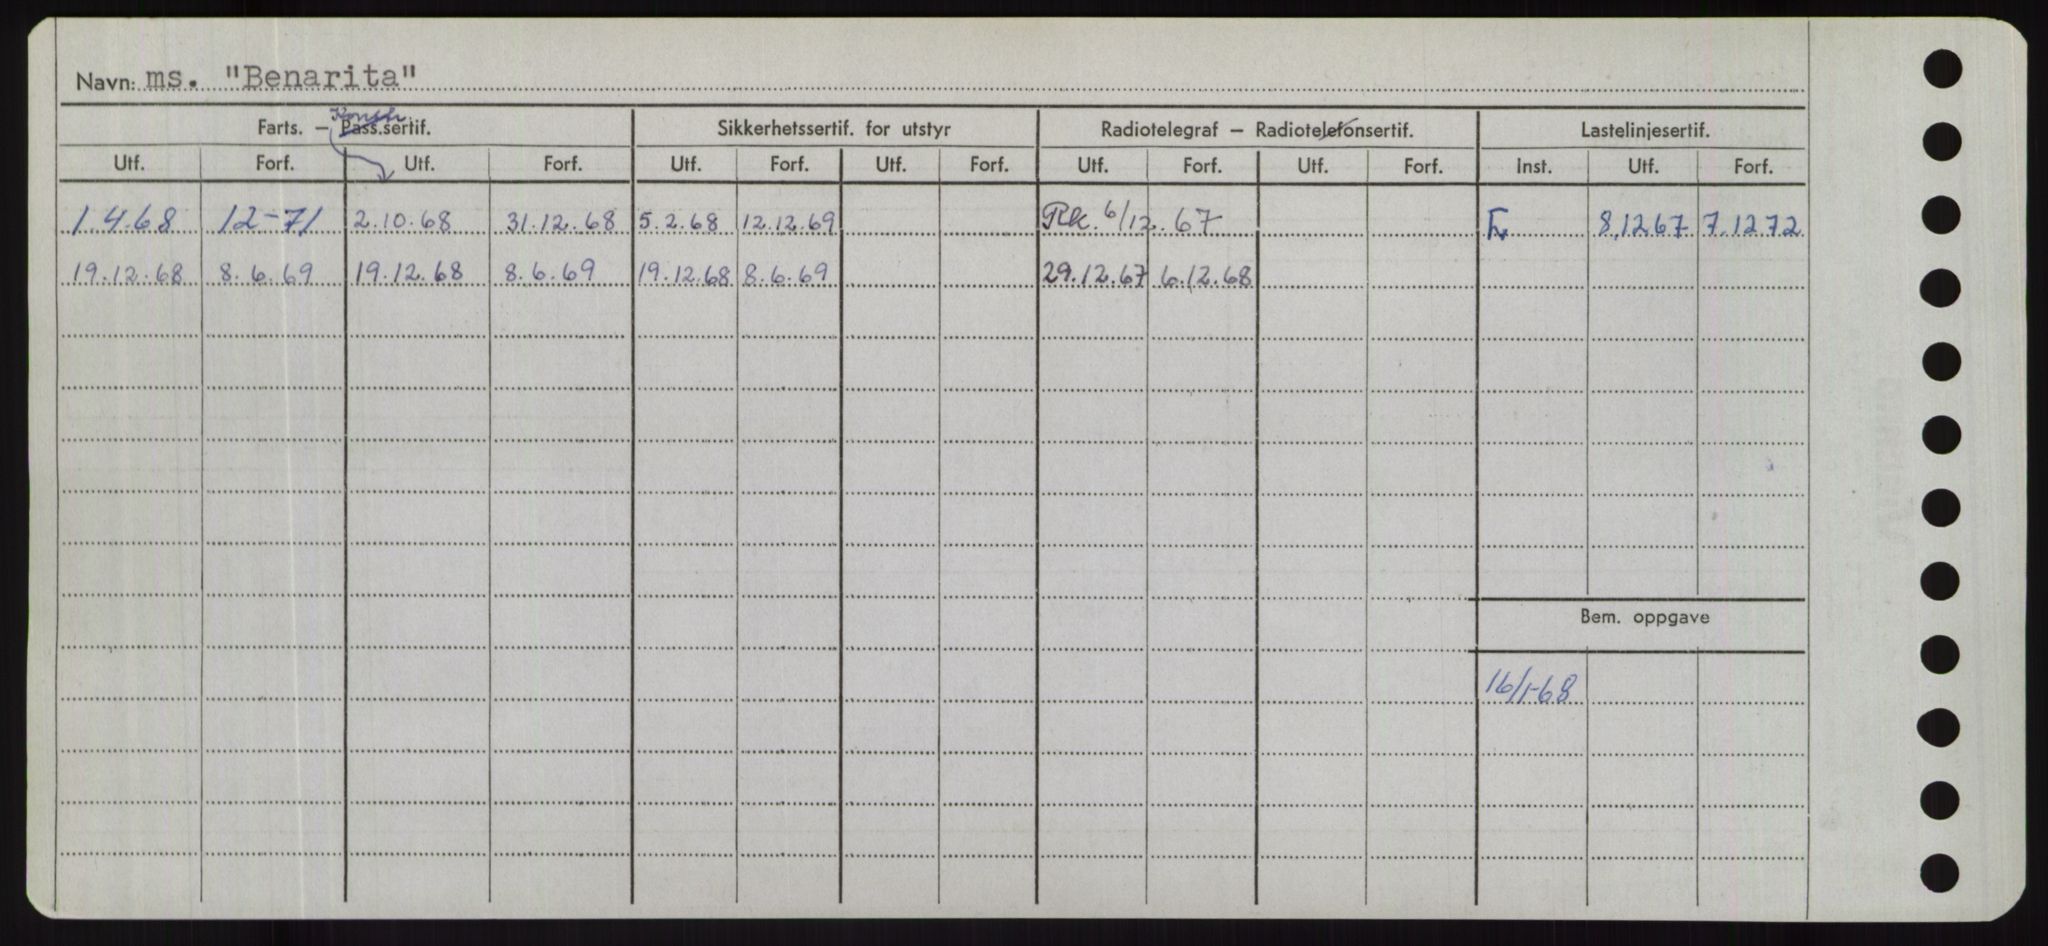 Navn: ms. "Benarita"
Konstr.
Farts. – Pass.sertif. Sikkerhetssertif. for utstyr Radiotelegraf – Radiotelefonsertif. Lastelinjesertif.
Utf. Forf. Utf. Forf. Utf. Forf. Utf. Forf. Utf. Forf. Utf. Forf. Inst. Utf. Forf.
1.4.68 12-71 2.10.68 31.12.68 5.2.68 12.12.69 Rk. 6/12.67 8.1267 7.1272
19.12.68 8.6.69 19.12.68 8.6.69 19.12.68 8.6.69 29.12.67 6.12.68
Bem. oppgave
16/1-68